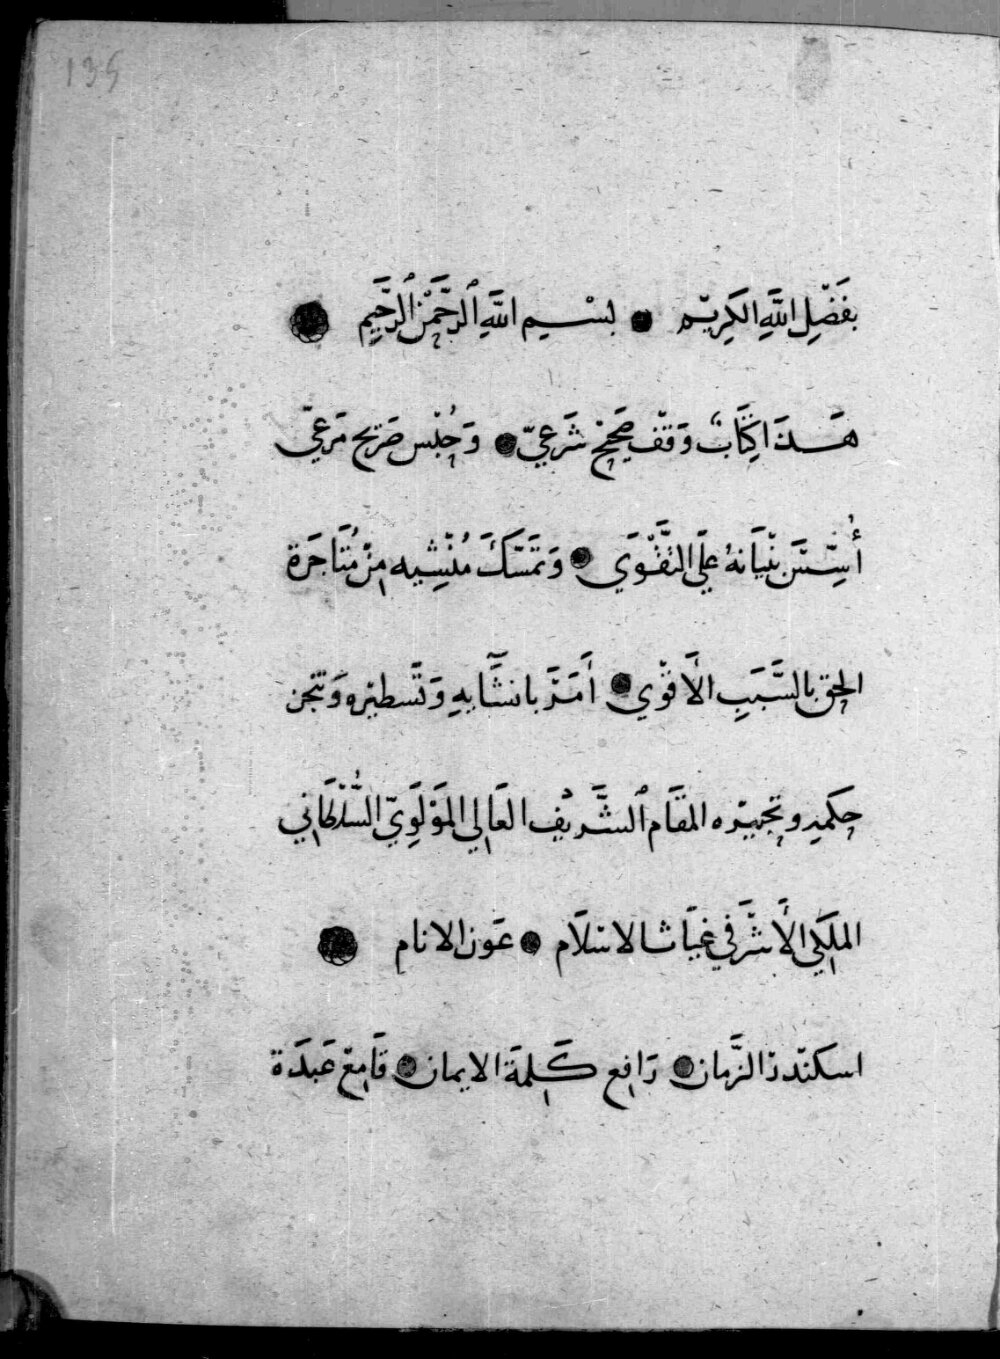 135
بِفَضْلِ اللَّهِ الكَرِيْمِ بِسْمِ اللَّهِ ٱلرَّحْمٰنِ ٱلرَّحِيمِ
هَذَا كِتَابُ وَقْفٍ صَحِيْحٍ شَرْعِيّ وَحُبْسٍ صَرِيحٍ مَرْعِيّ
أُسِّسَ بُنْيَانُهُ عَلَى التَّقْوَي وَتَمَسَّكَ مُنْشِيه مِنْ مُتَاجَرَة
الحق بالسَّبَبِ الأَقْوَي أَمَرَ بانشَآيِهِ وَتَسْطِيْرِه وَتَنْجِز
حكمه وتجهيزه المقَام ٱلشَّرِيْف العَالِي المَوْلَوِيّ السُّلْطَانِي
المَلَكِي الأَشْرَفي غيَاث الاسْلَام عَون الانام
اسكندر الزَّمان رَافِع كَلِمَة الايمان قَامِع عَبَدَة